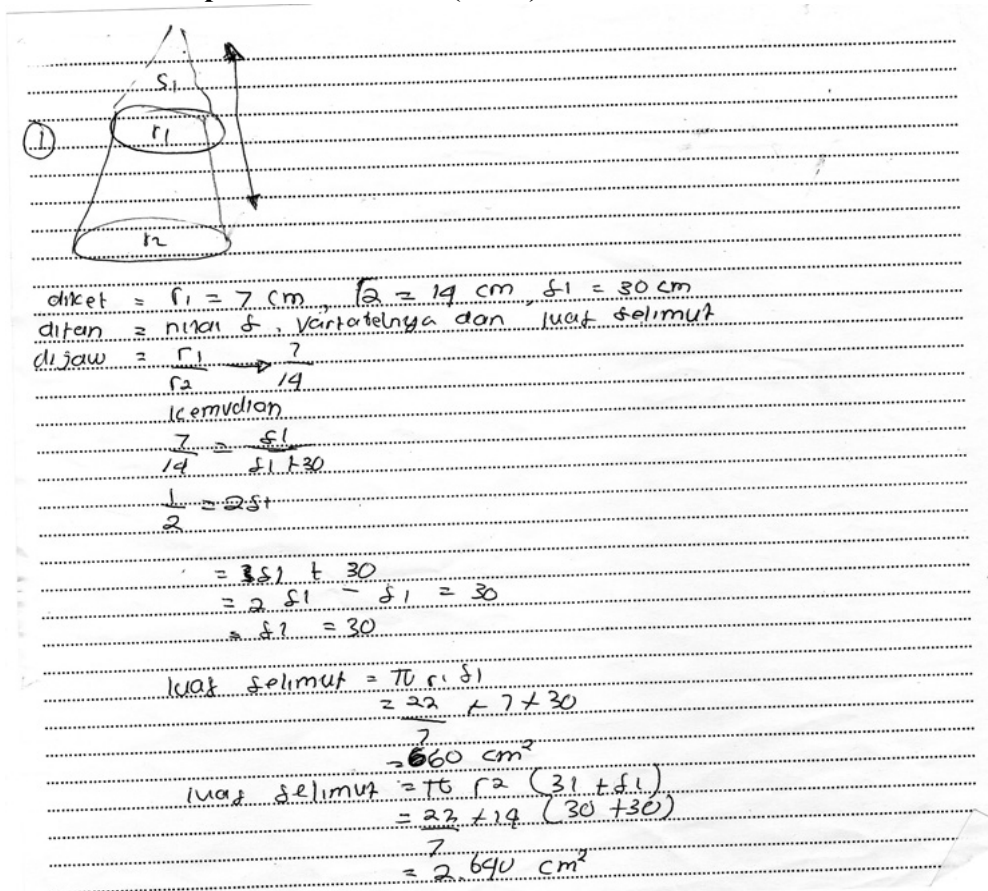 S1
① r1
r2
diket = r1 = 7 cm, r2 = 14 cm, s1 = 30 cm
ditan = nilai s, variabelnya dan luas selimut
dijaw = r1/r2 → 7/14
kemudian
7/14 = s1/s1+30
1/2 = 2s1
= s1 + 30
= 2 s1 - s1 = 30
= s1 = 30
luas selimut = π r1 s1
= 22/7 + 7 + 30
= 660 cm²
luas selimut = π r2 (31 + s1)
= 22/7 + 14 (30 + 30)
= 2.640 cm²